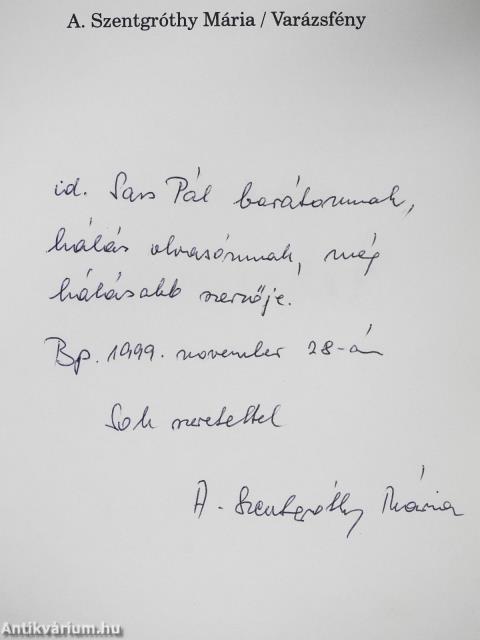 A. Szentgróthy Mária / Varázsfény
id. Sass Pál barátomnak,
hálás olvasómnak, még
hálásabb szerzője.
Bp. 1999. november 28-án
Sok szeretettel
A. Szentgróthy Mária
Antikvárium.hu